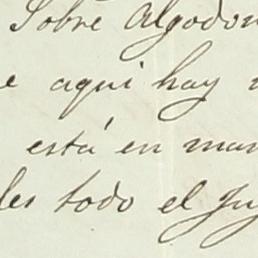 Sobre algodon
e aqui hay
está en man
les todo el